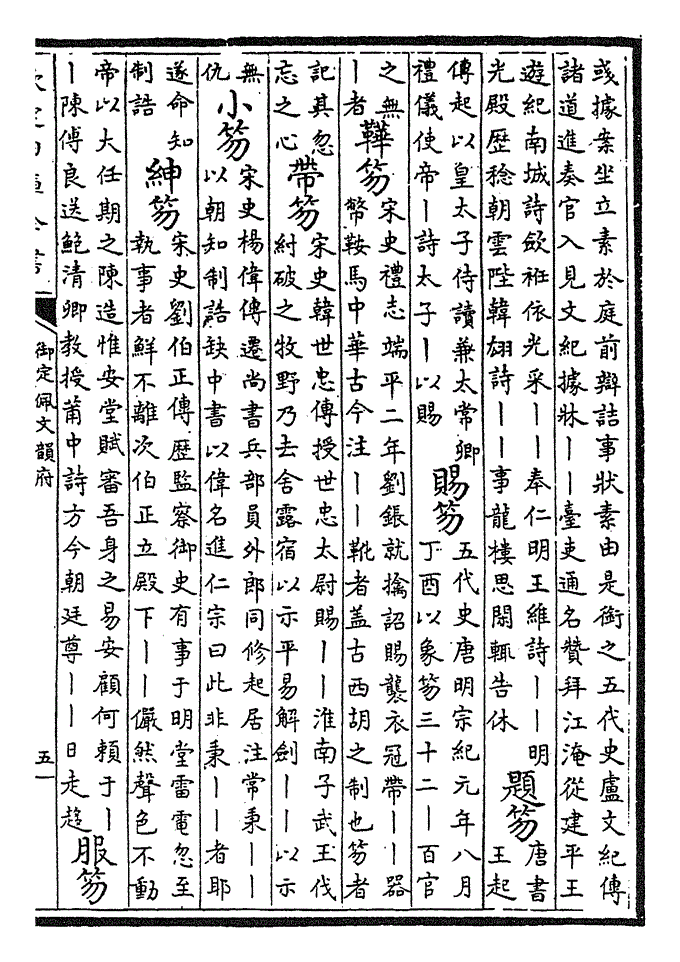 或據案坐立素於庭前辯詰事狀素由是銜之五代史盧文紀傳
諸道進奏官入見文紀據牀丨丨臺吏通名贊拜江淹從建平王
遊紀南城詩斂袵依光采丨丨奉仁明王維詩丨丨明
光殿歷稔朝雲陛韓翃詩丨丨事龍樓思閒輒告休
題笏
唐書
王起
傳起以皇太子侍讀兼太常卿
禮儀使帝丨詩太子丨以賜
賜笏
五代史唐明宗紀元年八月
丁酉以象笏三十二丨百官
之無
丨者
鞾笏
宋史禮志端平二年劉鋹就擒詔賜襲衣冠帶丨丨器
幣鞍馬中華古今注丨丨靴者蓋古西胡之制也笏者
記其忽
忘之心
帶笏
宋史韓世忠傳授世忠太尉賜丨丨淮南子武王伐
紂破之牧野乃去舍露宿以示平易解劍丨丨以示
無
仇
小笏
宋史楊偉傳遷尚書兵部員外郎同修起居注常秉丨丨
以朝知制誥缺中書以偉名進仁宗曰此非秉丨丨者耶
遂命知
制誥
紳笏
宋史劉伯正傳歷監察御史有事于明堂雷電忽至
執事者鮮不離次伯正立殿下丨丨儼然聲色不動
帝以大任期之陳造惟安堂賦審吾身之易安顧何賴于丨
丨陳傅良送鮑清卿教授莆中詩方今朝廷尊丨丨日走趨
服笏
欽定四庫全書
御定佩文韻府
五一